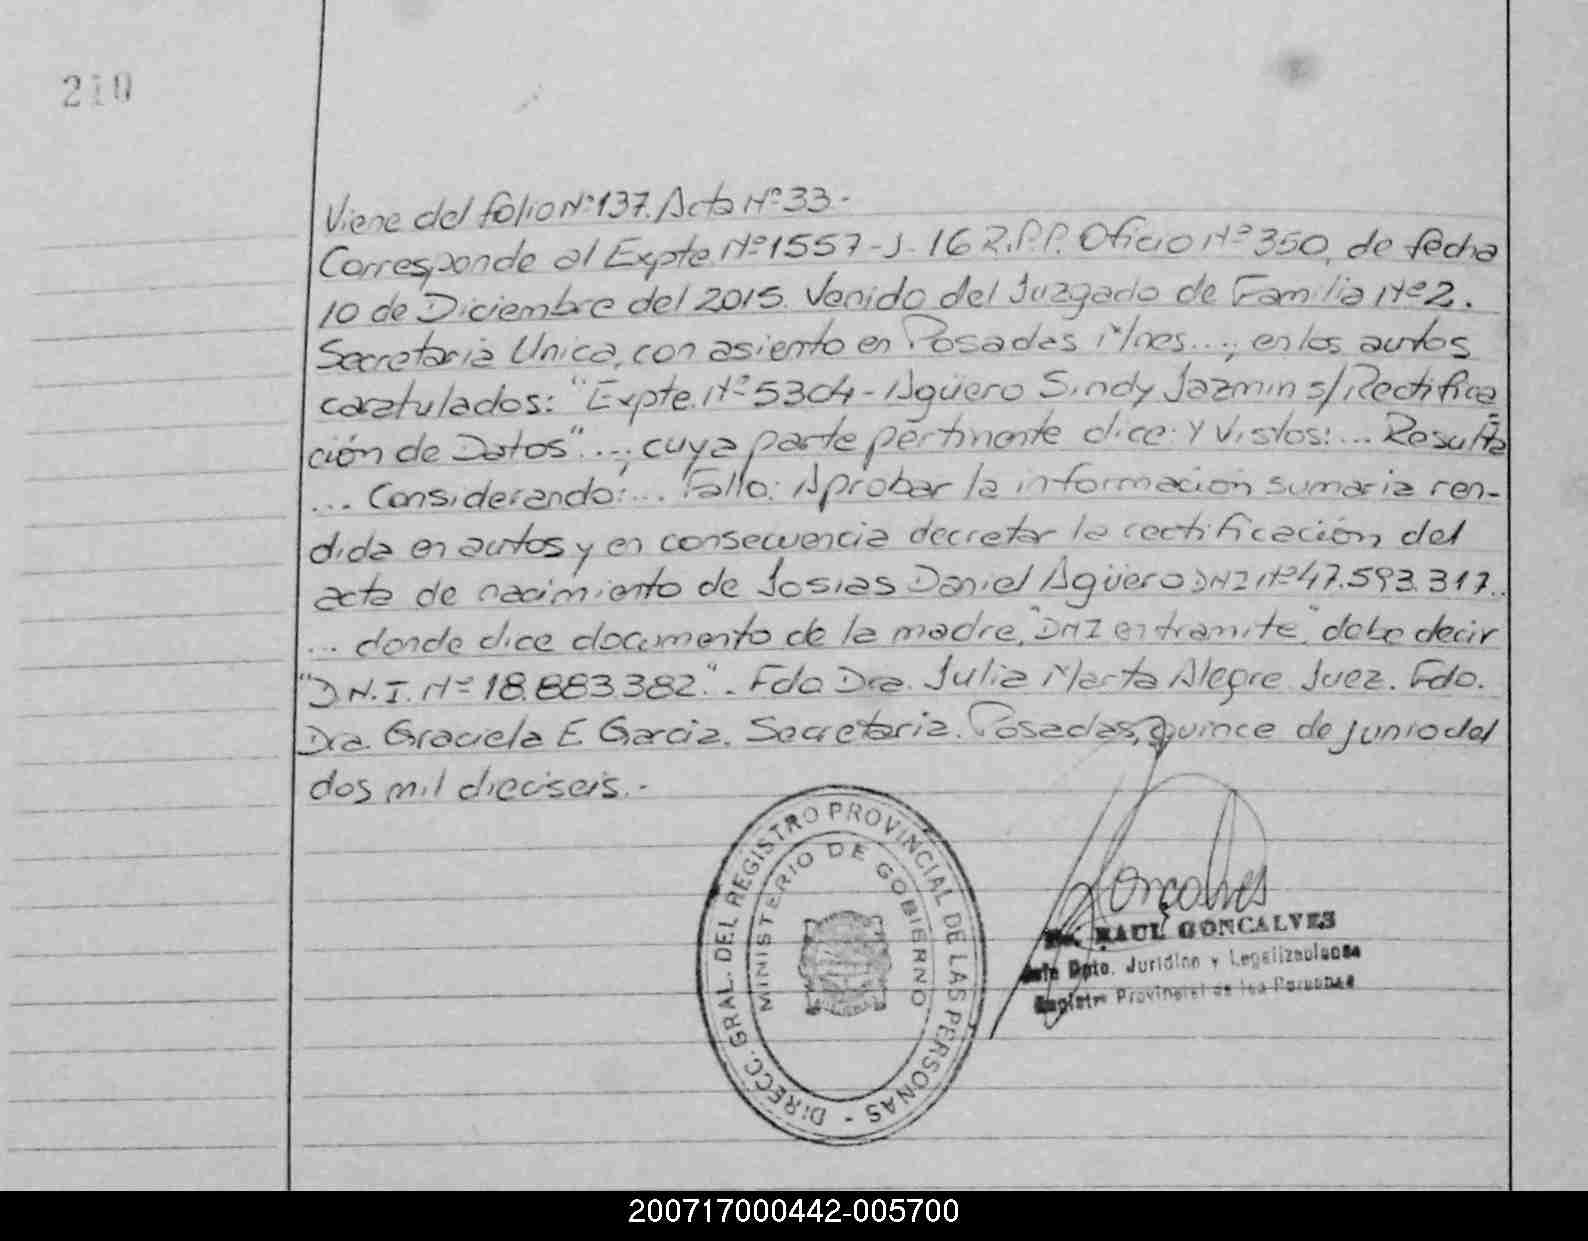 210
Viene del folio Nº 137. Acta Nº 33.-
Corresponde al Expte. Nº 1557-J-16 R.P.P. Oficio Nº 350, de fecha
10 de Diciembre del 2015. Venido del Juzgado de Familia Nº 2.
Secretaria Unica, con asiento en Posadas M/nes...; en los autos
caratulados: "Expte. Nº 5304-Agüero Sindy Jazmin s/Rectifica
ción de Datos"...; cuya parte pertinente dice: Y Vistos:... Resulta
... Considerando:... Fallo: Aprobar la información sumaria ren-
dida en autos y en consecuencia decretar la rectificación del
acta de nacimiento de Josias Daniel Agüero DNI Nº 47.593.317..
... donde dice documento de la madre, "DNI en tramite" debe decir
"D.N.I. Nº 18.883.382.". Fdo Dra. Julia Marta Alegre Juez. Fdo.
Dra. Graciela E. Garcia. Secretaria. Posadas, quince de junio del
dos mil dieciseis.-
DIRECC. GRAL. DEL REGISTRO PROVINCIAL DE LAS PERSONAS -
MINISTERIO DE GOBIERNO
Goncalves
RAUL GONCALVES
Jefe Dpto. Juridico y Legalizaciones
Registro Provincial de las Personas
200717000442-005700